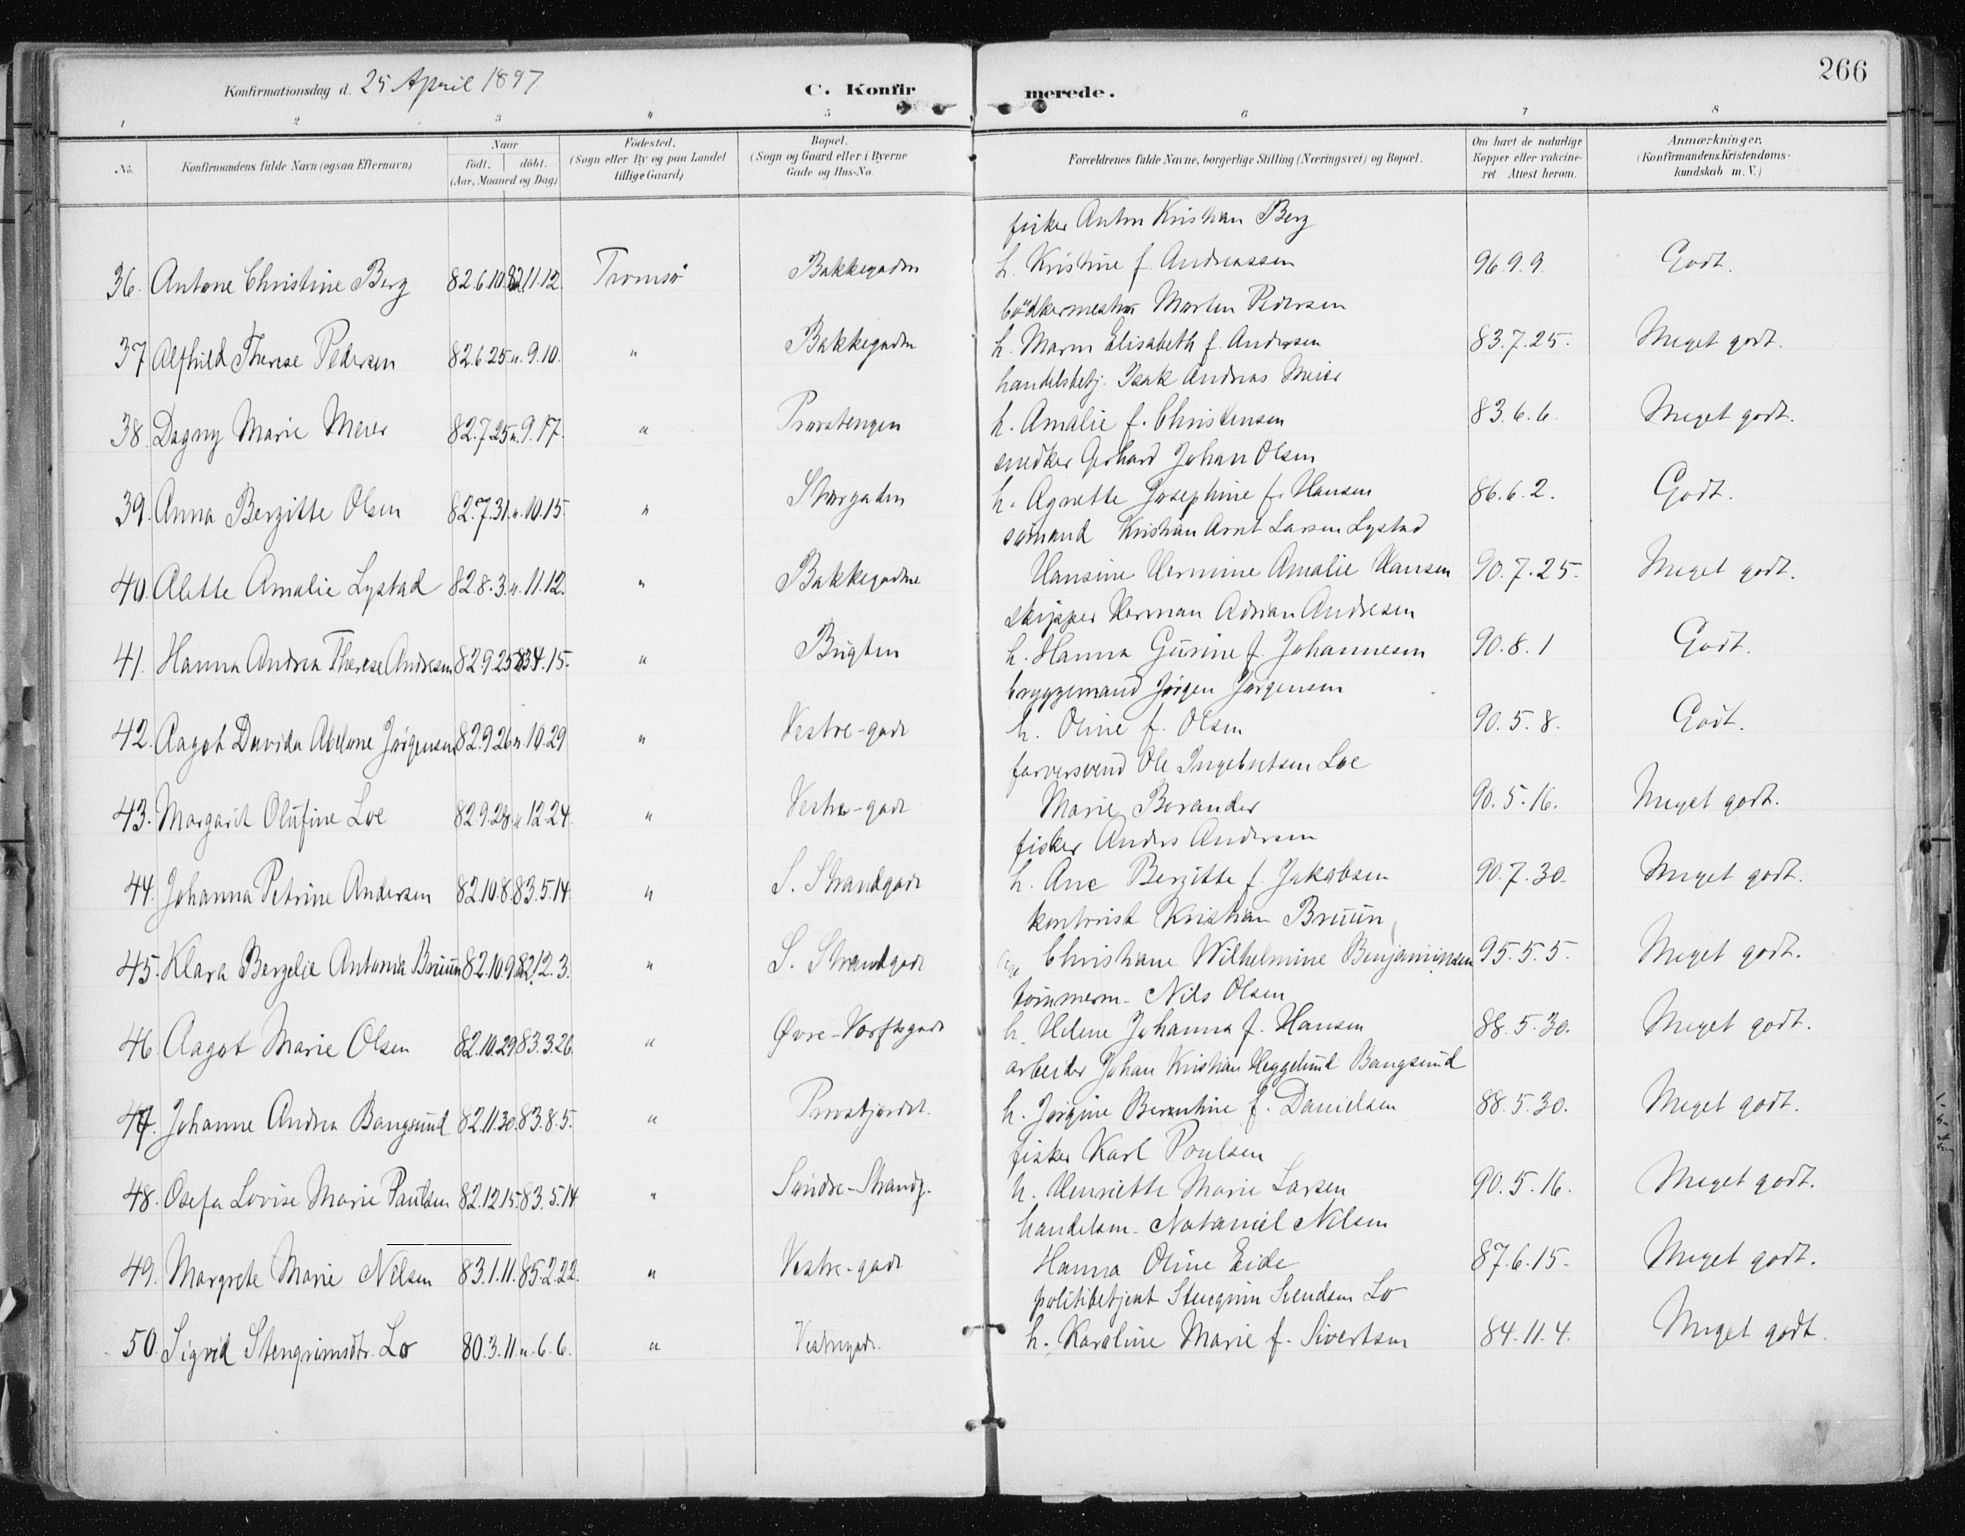 266
Konfirmationsdag d. 25 April 1897 C. Konfirmerede.
1 2 3 4 5 6 7 8
No. Konfirmandens fulde Navn (ogsaa Efternavn) Naar født. døbt. (Aar, Maaned og Dag) Fødested. (Sogn eller By og paa Landet tillige Gaard) Bopæl. (Sogn og Gaard eller i Byerne Gade og Hus-No. Forældrenes fulde Navne, borgerlige Stilling (Næringsvei) og Bopæl. Om havt de naturlige Kopper eller vakcineret. Attest herom. Anmærkninger. (Konfirmandens Kristendomskundskab m. V.)
fisker Anton Kristian Berg
36. Antone Christine Berg 82.6.10. 82.11.12. Tromsø Bakkegaden h. Kristine f. Andreassen 96.9.9. Godt.
bødkermester Morten Pedersen
37 Alfhild Therese Pedersen 82.6.25. „ 9.10. „ Bakkegaden h. Maren Elisabeth f. Andersen 83.7.25. Meget godt.
handelsbetj. Isak Andreas Meier
38. Dagny Marie Meier 82.7.25 „ 9.17. „ Provstengen h. Amalie f. Christensen 83.6.6. Meget godt.
snedker Gerhard Johan Olsen
39. Anna Bergitte Olsen 82.7.31. „ 10.15. „ Storgaden h. Agnette Josephine f. Hansen 86.6.2. Godt.
sømand Kristian Arnt Larsen Lystad
40. Alette Amalie Lystad 82.8.3. „ 11.12. „ Bakkegadene Hansine Hermine Amalie Hansen 90.7.25. Meget godt.
skipper Herman Adrian Andresen
41. Hanna Andrea Therese Andresen 82.9.25 83.4.15. „ Bugten h. Hanna Gurine f. Johannesen 90.8.1 Godt.
bryggemand Jørgen Jørgensen
42. Aagot Davida Abelone Jørgensen 82.9.26 „ 10.29 „ Vestre-gade h. Oline f. Olsen 90.5.8. Godt.
farversvend Ole Ingebretsen Loe
43. Margarit Olufine Loe 82.9.28 „ 12.24. „ Vestre-gade Marie Borander 90.5.16. Meget godt.
fisker Anders Andersen
44. Johanna Petrine Andersen 82.10.8. 83.5.14. „ S. Strandgade h. Ane Bergitte f. Jakobsen 90.7.30. Meget godt.
kontorist Kristian Bruun
45. Klara Bergelie Antonia Bruun 82.10.9. 82.12.3. „ S. Strandgade Christiane Wilhelmine Benjaminsen 95.5.5. Meget godt.
tømmerm. Nils Olsen
46. Aagot Marie Olsen 82.10.29 83.3.26. „ Øvre-Værftsgade h. Helene Johanna f. Hansen 88.5.30. Meget godt.
arbeider Johan Kristian Heggelund Bangsund
47. Johanne Andrea Bangsund 82.11.30. 83.8.5. „ Provstjordet. h. Jørgine Berntine f. Danielsen 88.5.30. Meget godt.
fisker Karl Poulsen
48. Osefa Lovise Marie Paulsen 82.12.15. 83.5.14 „ Søndre-Strandg. h. Henriette Marie Larsen 90.5.16. Meget godt.
handelsm. Nataniel Nilsen
49. Margrete Marie Nilsen 83.1.11. 85.2.22. „ Vestre-gade Hanna Oline Eide 87.6.15. Meget godt.
politibetjent Stengrim Svendsen Lo
50. Sigrid Stengrimsdtr. Lo 80.3.11. „ 6.6. „ Vestregade. h. Karoline Marie f. Sivertsen 84.11.4. Meget godt.